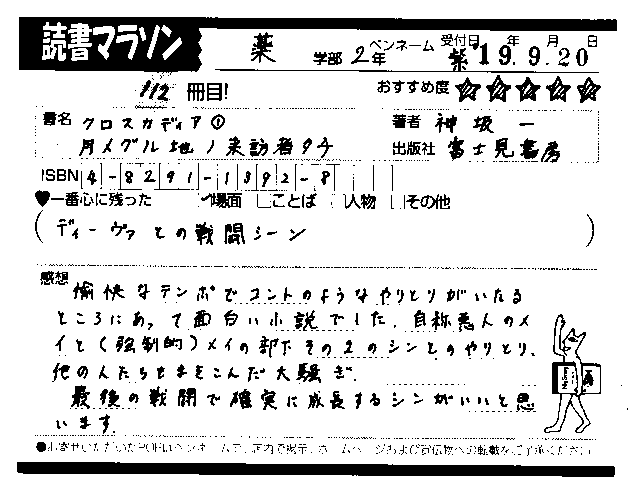 読書マラソン
薬 学部 2年 ペンネーム 紫 受付日 '19年 9月 20日
112 冊目! おすすめ度 ☆☆☆☆☆
書名 クロスカディア① 著者 神坂 一
月メグル地ノ来訪者タチ 出版社 富士見書房
ISBN 4-8291-1392-8
♥一番心に残った ✓場面 □ことば □人物 □その他
(ディーヴァとの戦闘シーン)
感想
愉快なテンポでコントのようなやりとりがいたる
ところにあって面白い小説でした。自称悪人のメ
イと(強制的)メイの部下その2のシンとのやりとり、
他の人たちもまきこんだ大騒ぎ。
最後の戦闘で確実に成長するシンがいいと思
います。
●お寄せいただいたPOPはペンネームで、店内で掲示、ホームページおよび宣伝物への転載をご了承ください